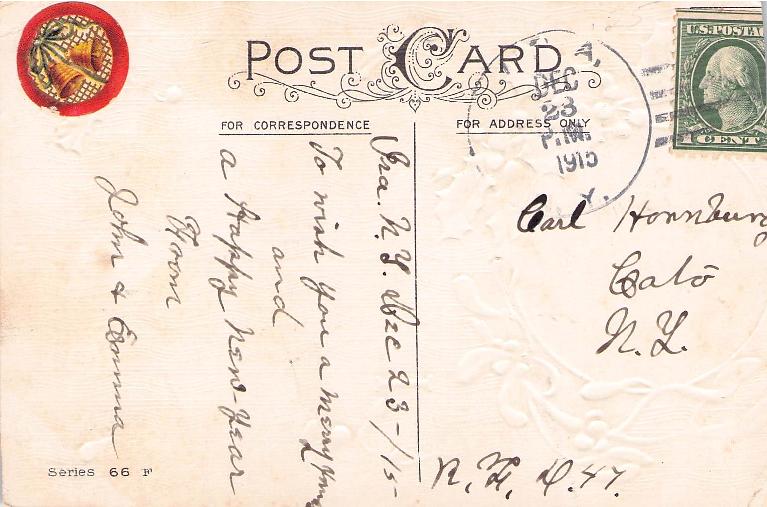 POST CARD
FOR CORRESPONDENCE
FOR ADDRESS ONLY
DEC
23
P.M.
1915
U.S. POSTAGE
1 CENT
Ira. N.Y. Dec 23-/15-
To wish you a Merry Xmas
and
a Happy New-Year
From
John & Emma
Carl Hornburg
Cato
N.Y.
R.F.D. 47.
Series 66 F